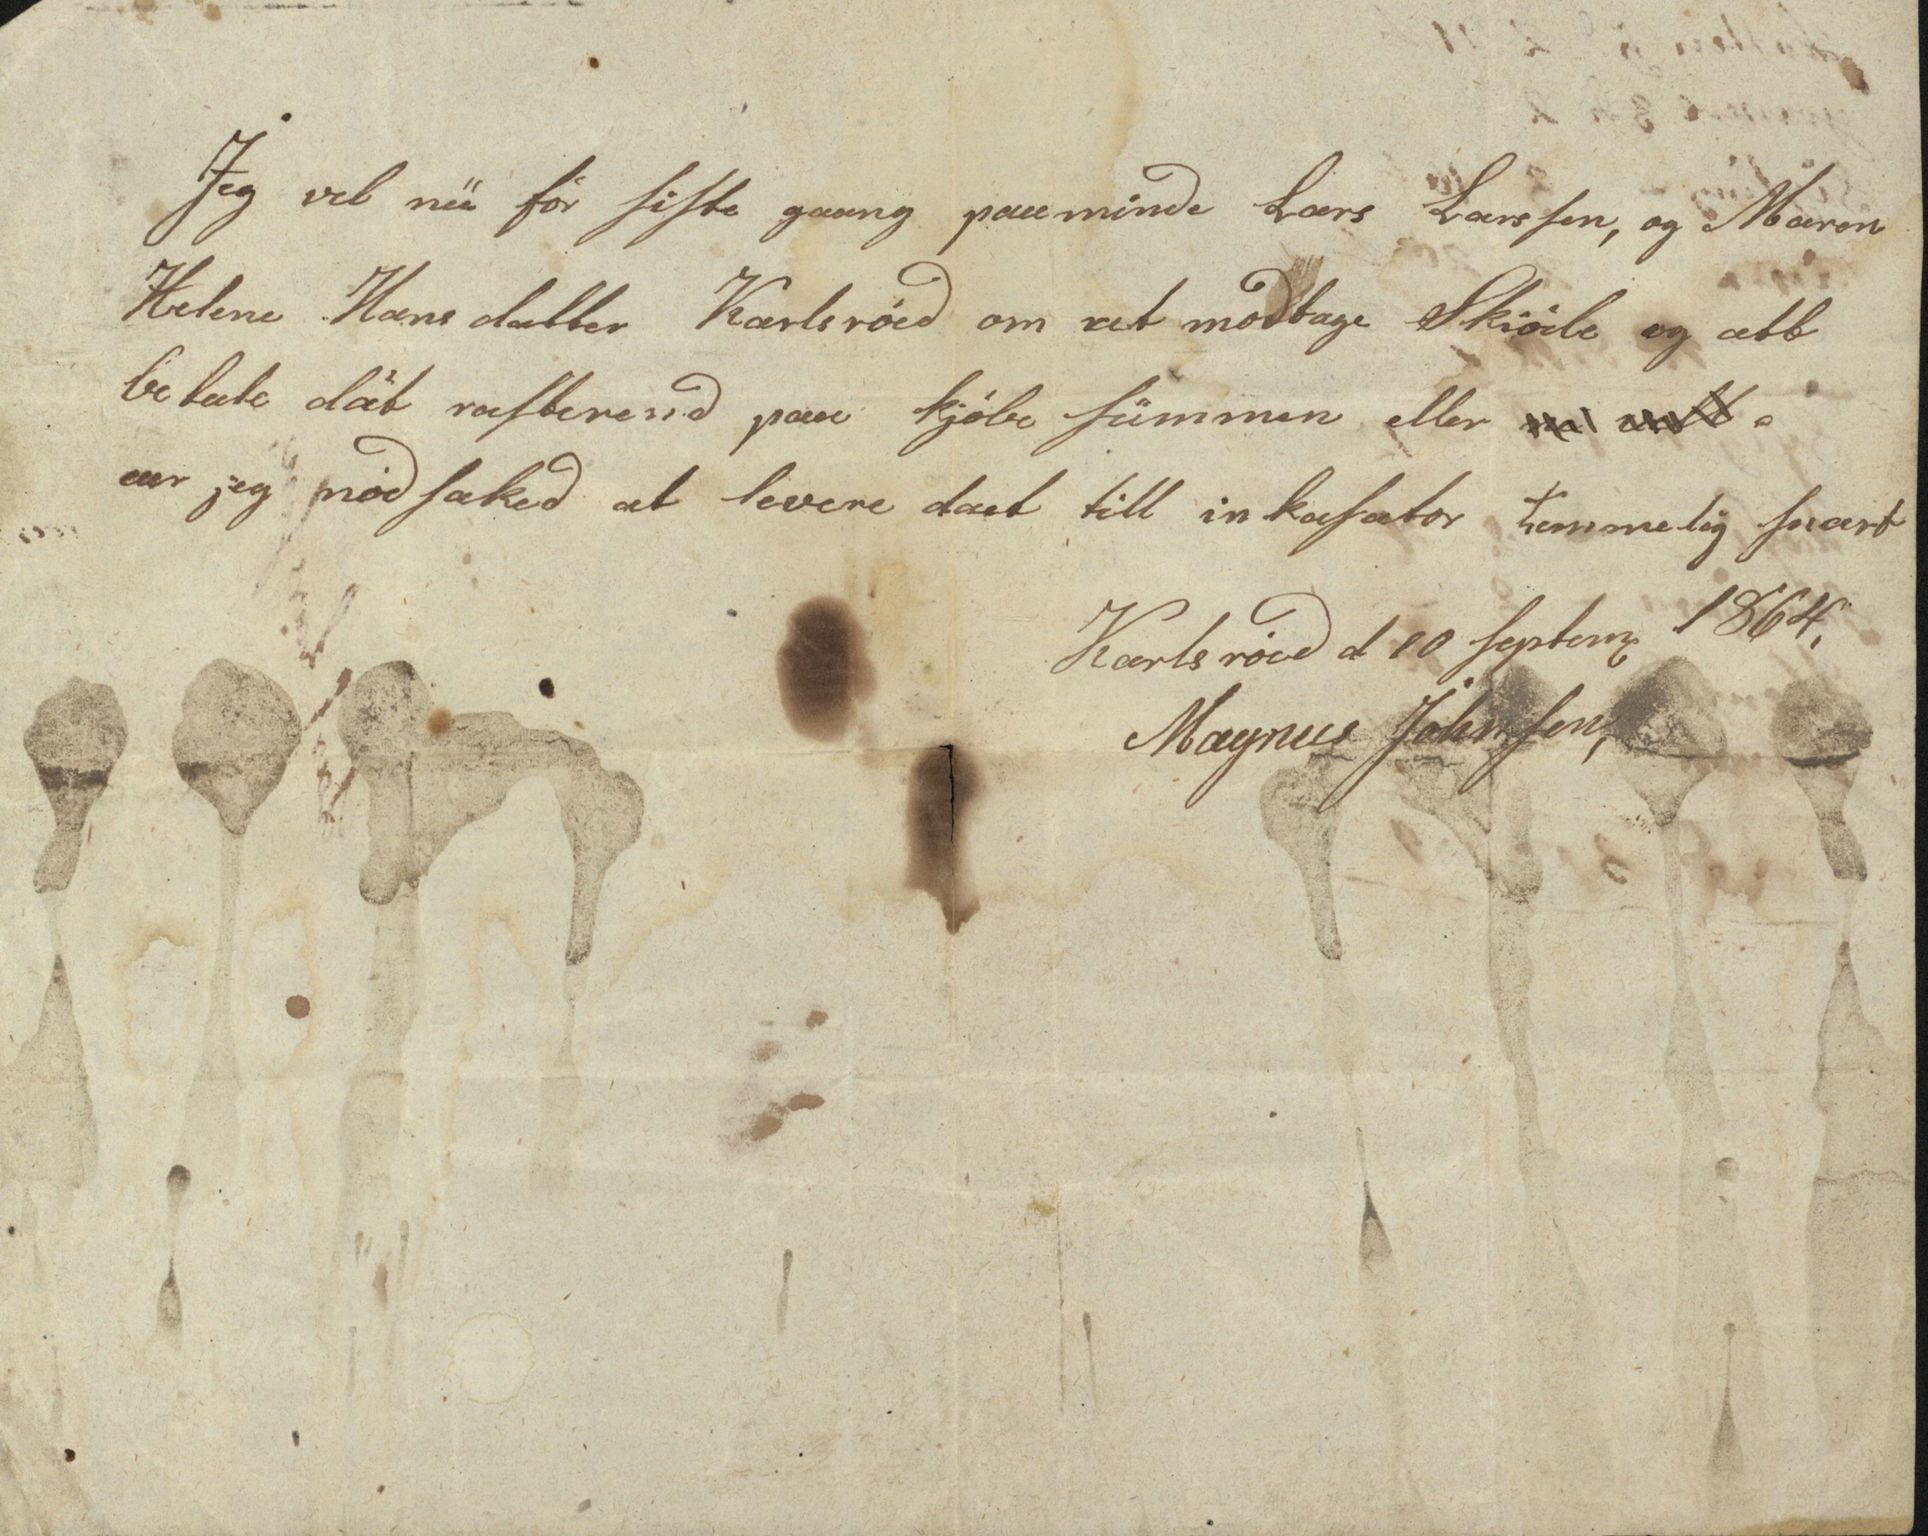 Jeg vel nü för siste gaang paaminde Lars Larssen, og Maren
Helene Hansdatter Karlsröed om at modtage Skiöde og att
betale dät rasterend paa kjöbe sümmen eller
er jeg nödsaked at levere daet till inkasator temmelig snart
Karlsröed d 10 septem 1864,
Magnus Johnsen,